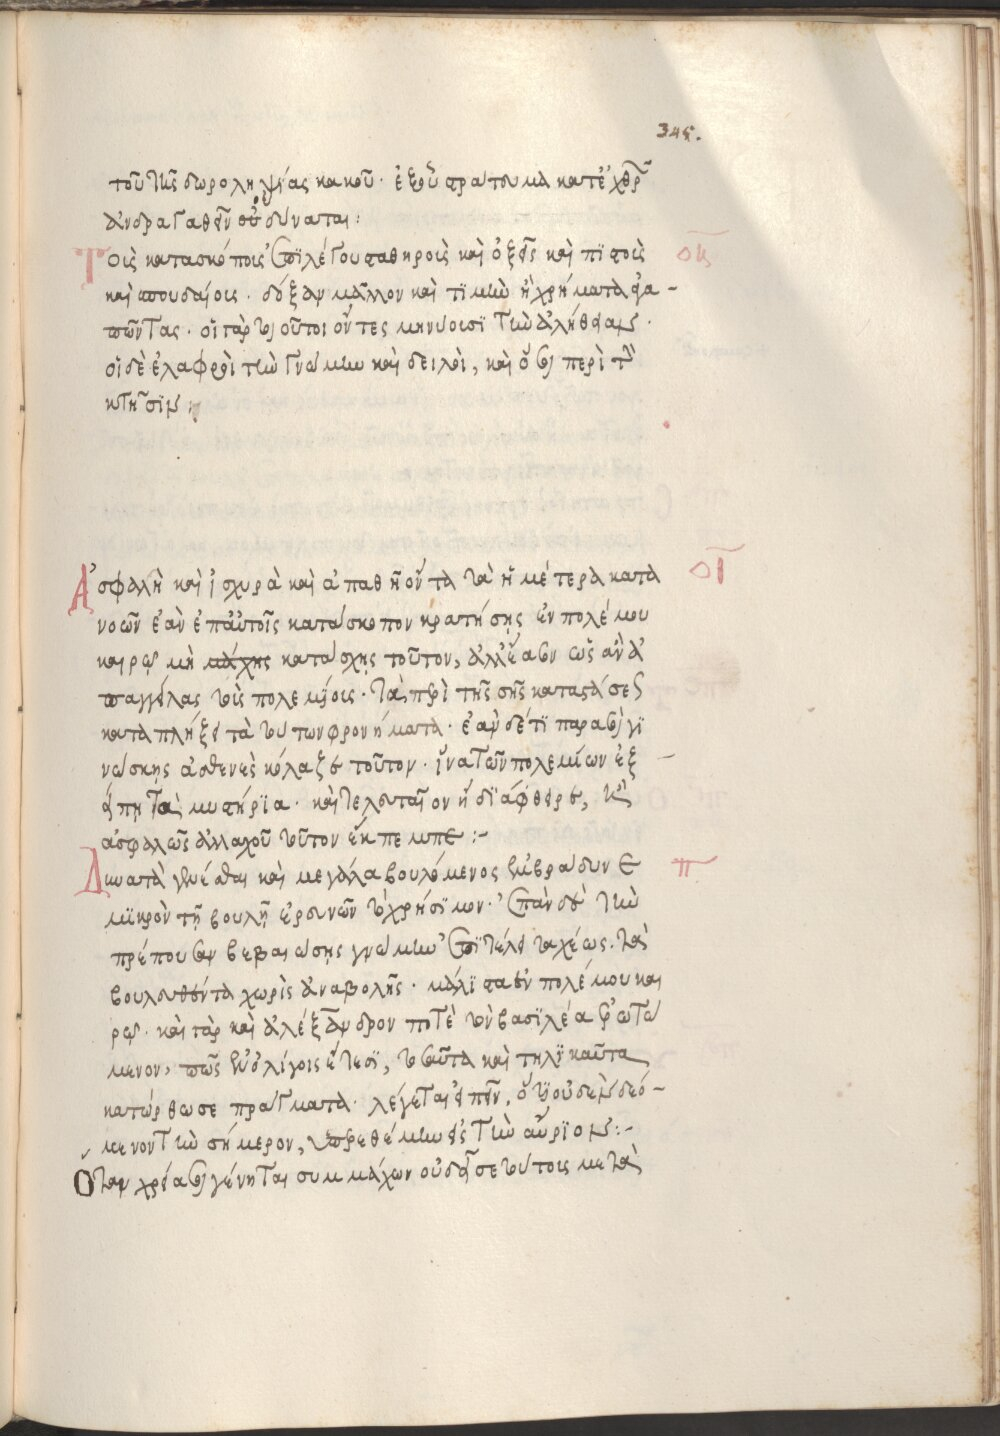 345.
τοῦ τῆς δωροληψίας κακοῦ· ἐξ οὗ στράτευμα κατ' ἐχθρῶν
ἀνδραγαθεῖν οὐ δύναται:
Τοῖς κατασκόποις ἐπιλέγου σταθηροῖς καὶ ὀξεῖς καὶ πιστοῖς
οη
καὶ σπουδαίοις· δόξαν μᾶλλον καὶ τιμὴν ἢ χρήματα ἀγα-
πῶντας· οἱ γὰρ τοιοῦτοι ὄντες μηνύουσι τὴν ἀλήθειαν·
οἱ δὲ ἐλαφροὶ τὴν γνώμην καὶ δειλοὶ, καὶ ὅσοι περὶ τὴν
κτῆσιν
Ἀσφαλῆ καὶ ἰσχυρὰ καὶ ἀπαθῆ ὄντα τὰ ἡμέτερα κατα
οθ
νοῶν ἐὰν ἐπ' αὐτοῖς κατάσκοπον κρατήσῃς ἐν πολέμου
καιρῷ μὴ μάχης κατάσχῃς τοῦτον, ἀλλ' ἔασον ὡς ἂν ἀ
παγγείλας τοῖς πολεμίοις· τὰ περὶ τῆς σῆς καταστάσεως
καταπλήξει τὰ τούτων φρονήματα· ἐὰν δέ τι παρὰ σοὶ γι
νώσκῃς ἀσθενὲς κόλαζε τοῦτον· ἵνα τῶν πολεμίων ἐξ
είπῃ τὰ μυστήρια· καὶ τελευταῖον ἢ διάφθειρε, ἢ
ἀσφαλῶς ἀλλαχοῦ τοῦτον ἔκπεμπε:-
Δυνατὰ γενέσθαι καὶ μεγάλα βουλόμενος ἐμβράδυνε
π
μικρὸν τῇ βουλῇ ἐρευνῶν τὸ χρήσιμον· ἐπὰν δὲ τὴν
πρέπουσαν βεβαιώσῃς γνώμην ἐπιτέλει ταχέως. τὰ
βουλευθέντα χωρὶς ἀναβολῆς· μάλιστα ἐν πολέμου και
ρῷ· καὶ γὰρ καὶ ἀλέξανδρον ποτὲ τὸν βασιλέα ἐρωτώ
μενον, πῶς ἐν ὀλίγοις ἔτεσι, τοσαῦτα καὶ τηλικαῦτα
κατώρθωσε πράγματα· λέγεται εἰπεῖν, ὅτι οὐδὲν δεό-
μενον τὴν σήμερον, ὑπερεθέμην εἰς τὴν αὔριον:-
Ὅταν χρεία σοι γένηται συμμάχων οὐ δεήσει τούτοις μετὰ